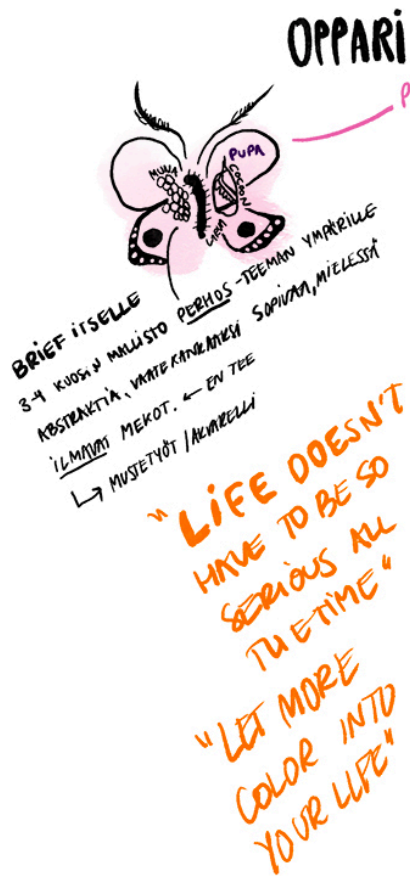 OPPARI
P
PUPA
MUNA
COCOON
LARVA
BRIEF ITSELLE
3-4 KUOSIN MALLISTO PERHOS-TEEMAN YMPÄRILLE
ABSTRAKTIA, VAATEKANKAAKSI SOPIVAA, MIELESSÄ
ILMAVAT MEKOT. ← EN TEE
↳ MUSTETYÖT / AKVARELLI
"LIFE DOESN'T
HAVE TO BE SO
SERIOUS ALL
THE TIME"
"LET MORE
COLOR INTO
YOUR LIFE"